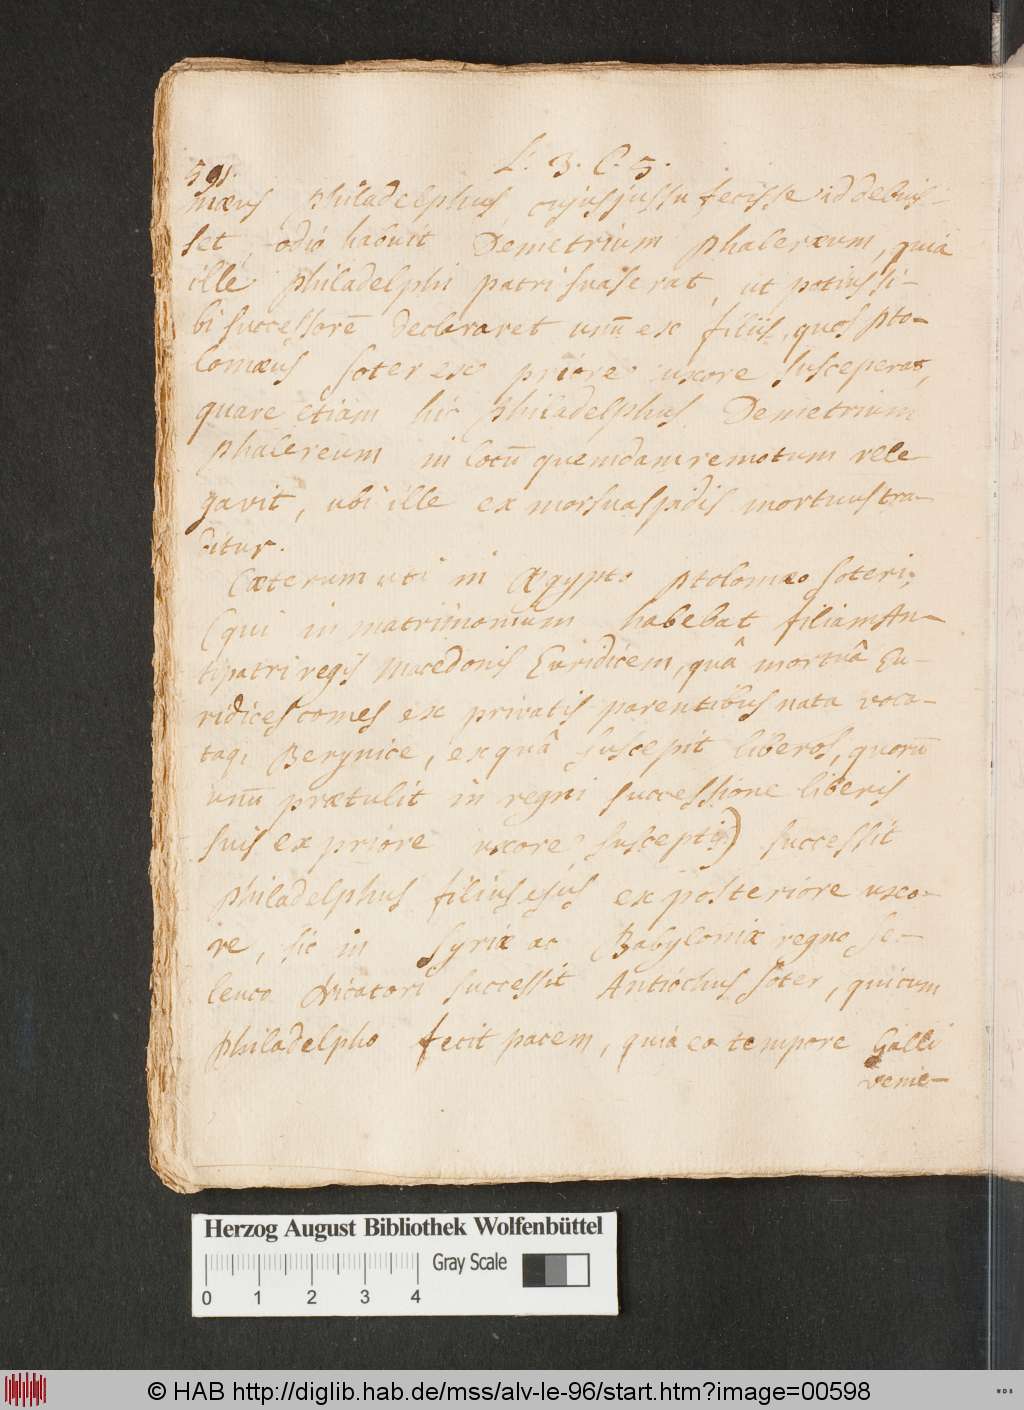 L. 3. C. 5.
591.
mæus Philadelphus, cujus jussu fecisse id debuis-
set, odiô habuit Demetrium phaleræum, quia
ille Philadelphi patri suaserat, ut potius si-
bi successorē declararet unū ex filiis, quos Pto-
lomæus Soter ex priore uxore susceperat,
quare etiam hic Philadelphus Demetrium
phalereum in locū quemdam remotum rele
gavit, ubi ille ex morsu aspidis mortuus tra-
ditur.
Cæterum uti in Ægypto Ptolomæo Soteri,
(qui in matrimonium habebat filiam An-
tipatri regis Macedonis Euridicem, quâ mortuâ Eu-
ridices comes ex privatis parentibus nata voca-
ta Berynice, ex quâ suscepit liberos, quorū
unū prætulit in regni successione liberis
suis ex priore uxore susceptis) successit
Philadelphus filius ejus ex posteriore uxo-
re, sic in Syriæ ac Babyloniæ regno Se-
leuco Nicatori successit Antiochus Soter, qui cum
Philadelpho fecit pacem, quia eo tempore Galli
venie-
Herzog August Bibliothek Wolfenbüttel
Gray Scale
0 1 2 3 4
© HAB http://diglib.hab.de/mss/alv-le-96/start.htm?image=00598